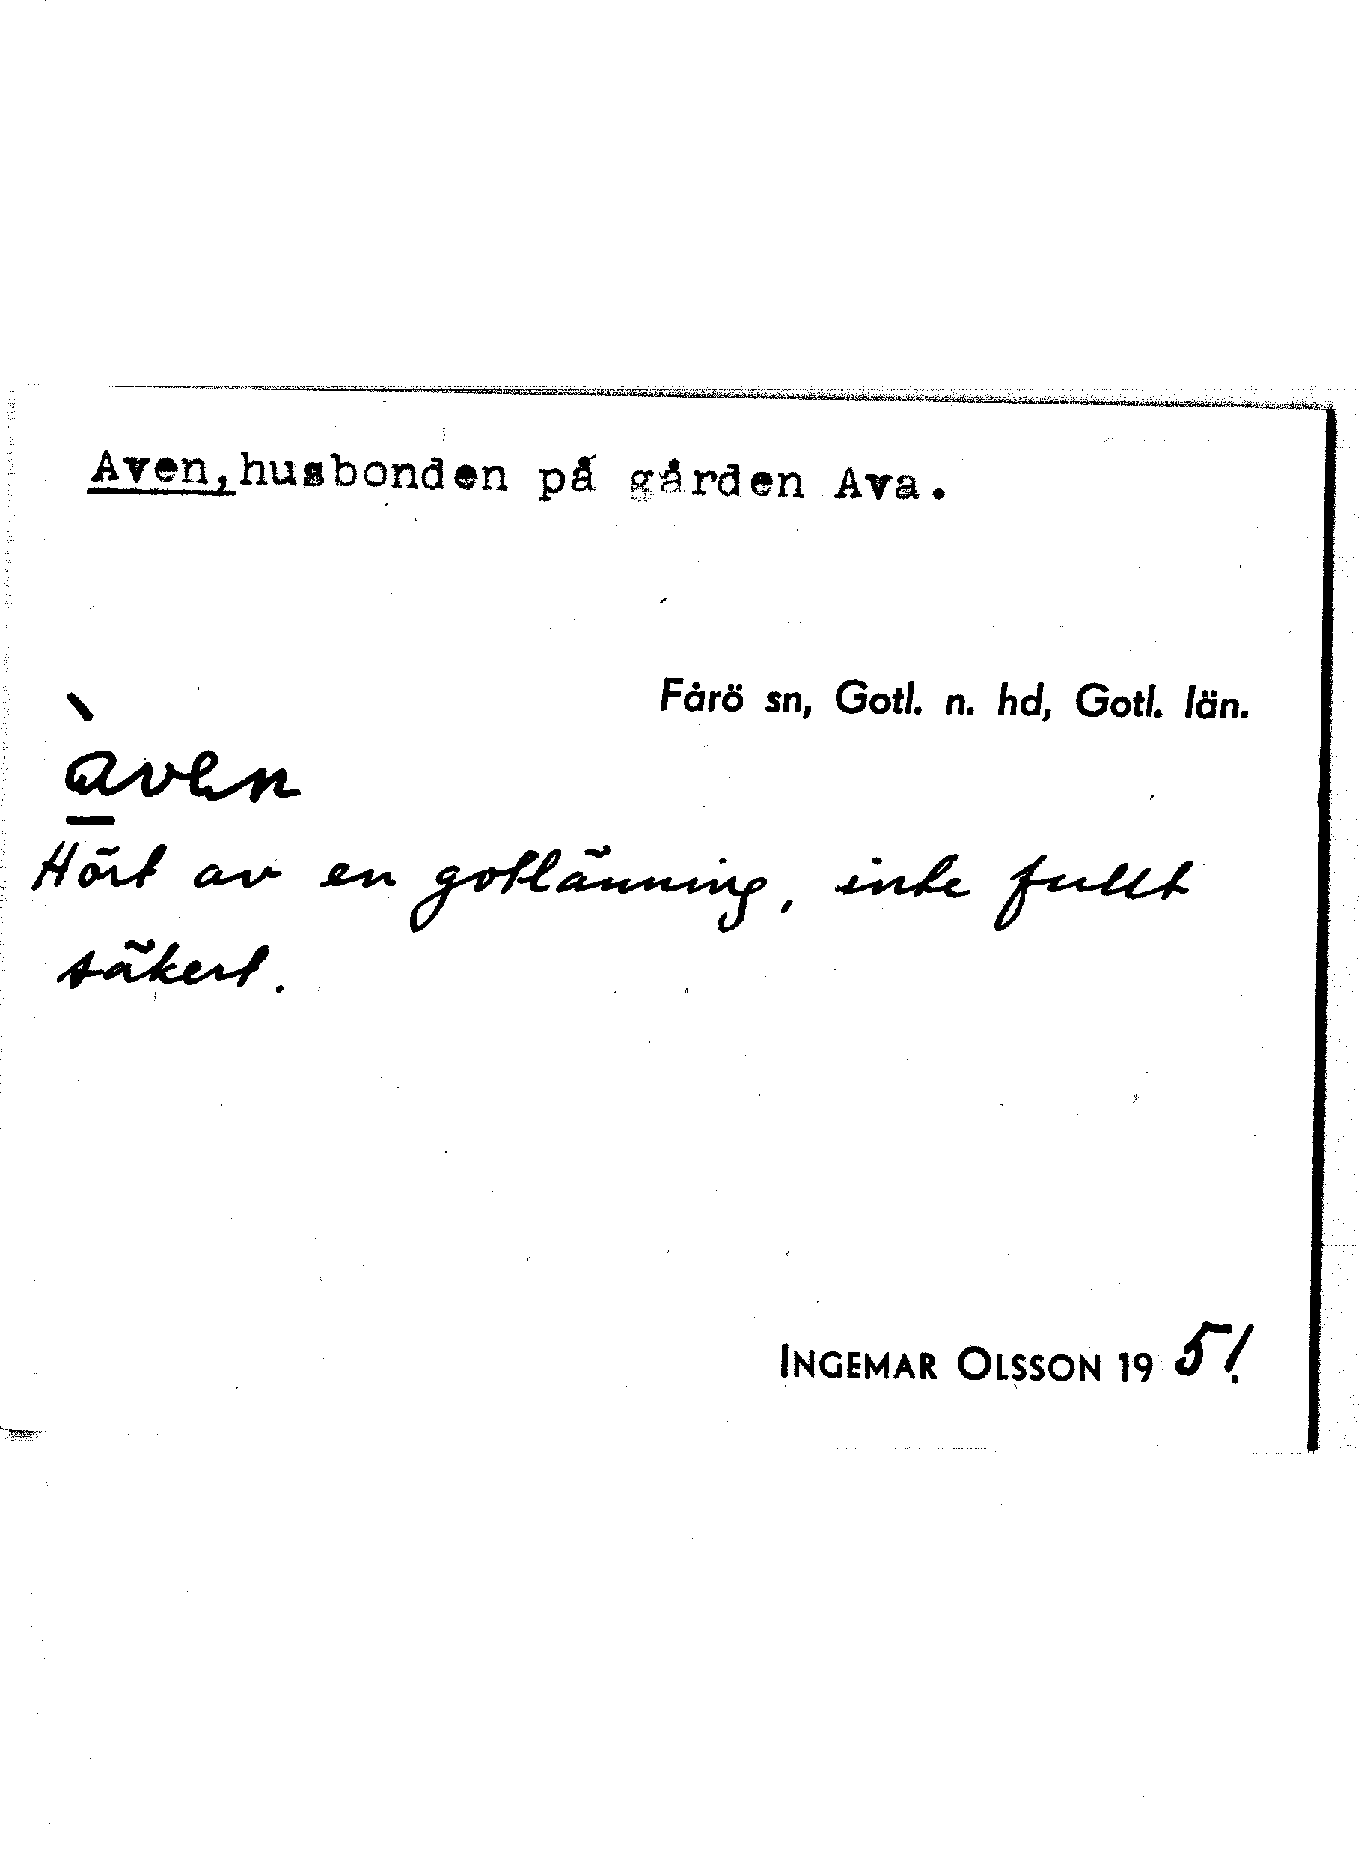 Aven, husbonden på gården Ava.
Fårö sn, Gotl. n. hd, Gotl. län.
à̱ven
Hört av en gotlänning, inte fullt
säkert.
INGEMAR OLSSON 19 51.